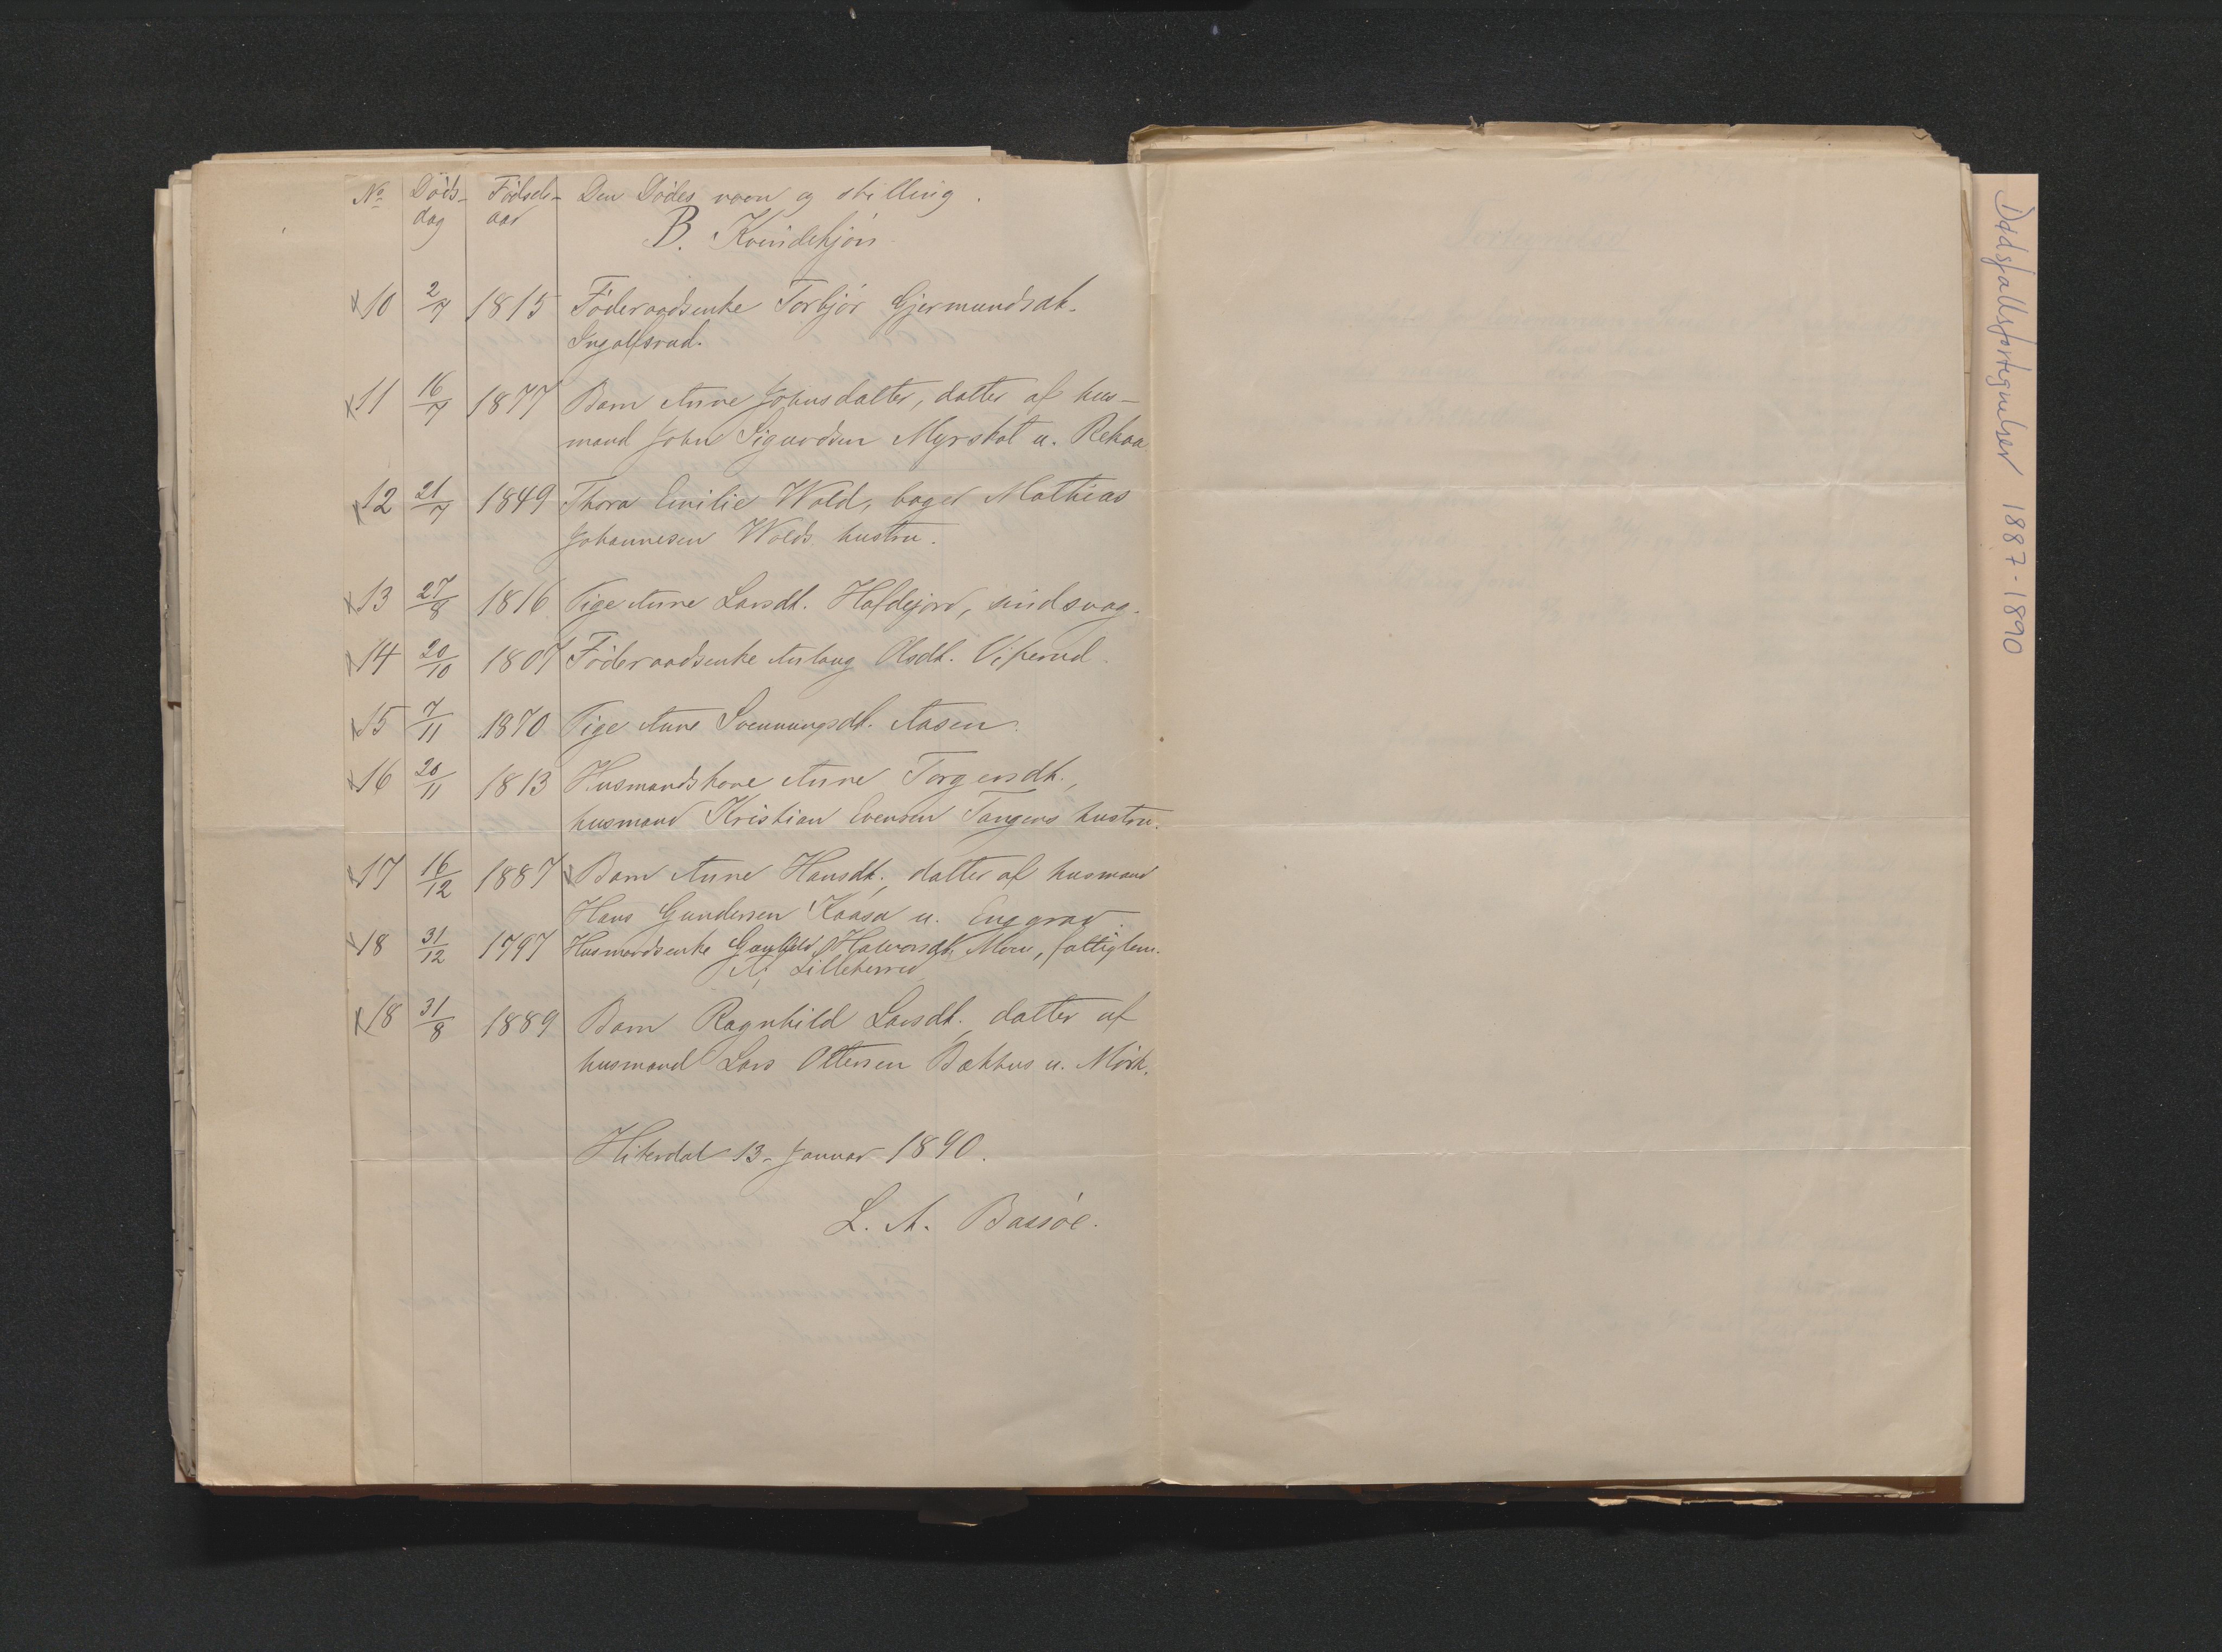 No Döds- Födsels- Den Dödes navn og stilling.
dag aar
B. Kvindekjön
x10 2/7 1815 Föderaadsenke Torbjör Gjermundsdt.
Ingolfsrud.
x11 16/7 1877 Barn Anne Johnsdatter, datter af hus-
mand John Sigurdsen Myrskot u. Rekaa
x12 21/7 1849 Thora Emilie Wold, bager Mathias
Johannesen Wolds hustru.
x13 27/8 1816 Pige Anne Larsdt. Hafdejord, sindsvag.
x14 20/10 1807 Föderaadsenke Aslaug Olsdt. Vikerud.
x15 7/11 1870 Pige Anne Svennungsdt. Aasen.
x16 20/11 1813 Husmandskone Anne Torgersdt.,
husmand Kristian Evensen Tangens hustru.
x17 16/12 1887 x Barn Anne Hansdt., datter af husmand
Hans Gundersen Kaasa u. Enggrav.
x18 31/12 1797 Husmandsenke Halvorsdt. Moen, fattiglem.
Lilleherred
x18 31/8 1889 Barn Ragnhild Larsdt. datter af
husmand Lars Ottersen Bækhus u. Mörk.
Hiterdal 13. Januar 1890.
L. A. Bassöe.
Dødsfallsfortegnelser 1887-1890